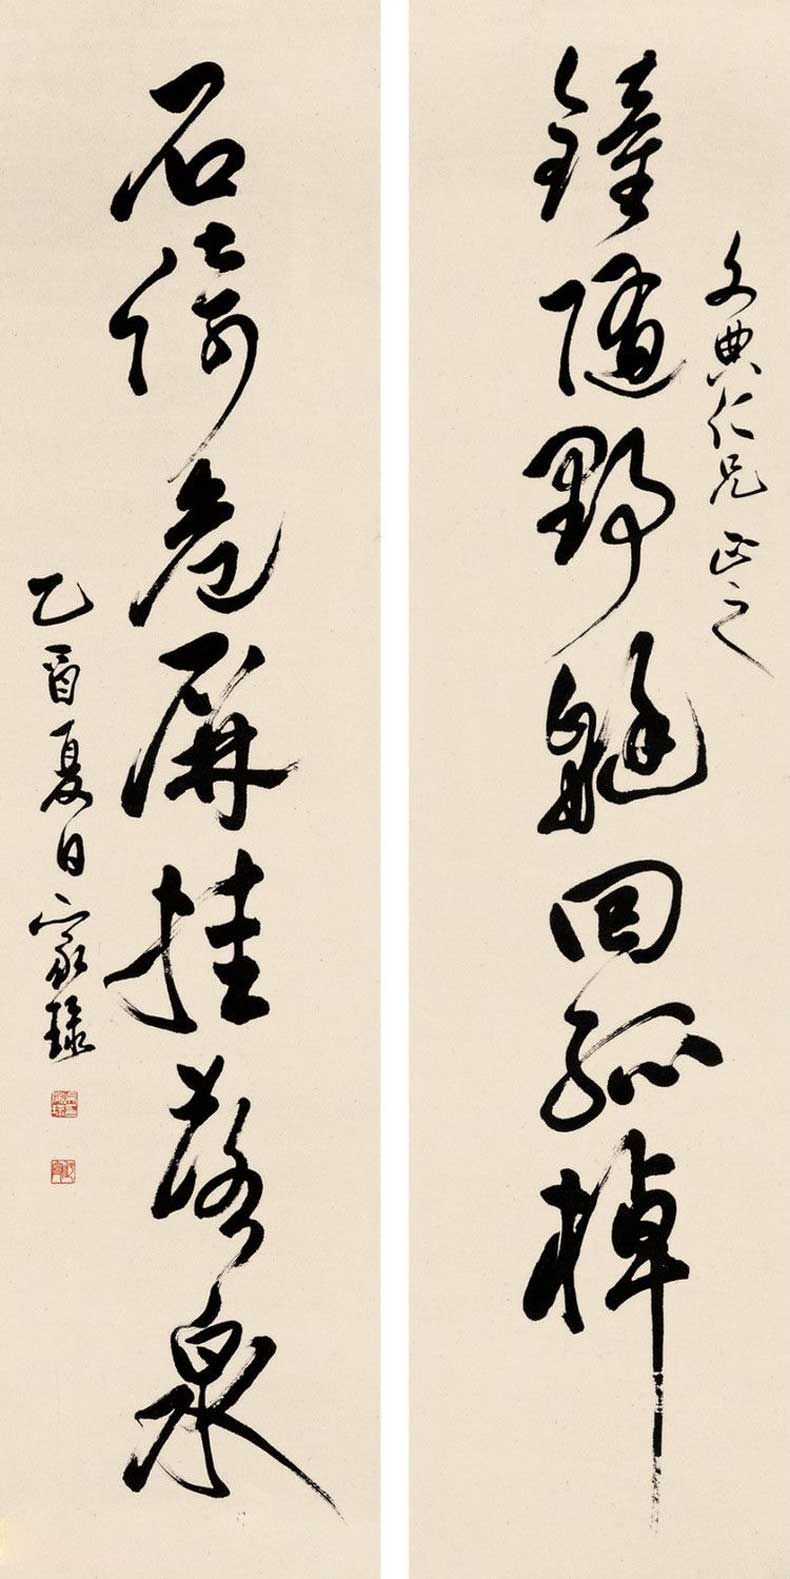 文典仁兄正之
鐘随野艇回孤棹
石倚危屏挂落泉
乙酉夏日家琭